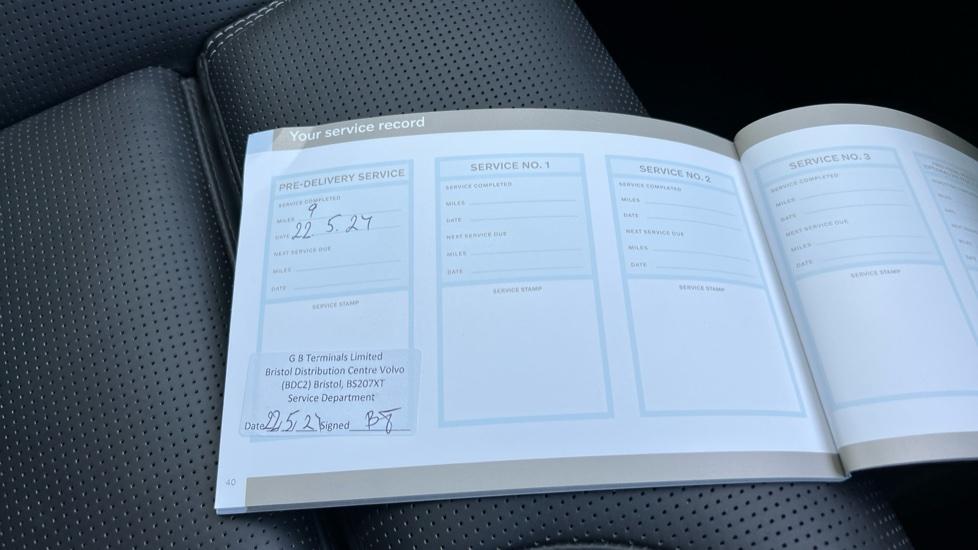 Your service record
PRE-DELIVERY SERVICE
SERVICE COMPLETED
MILES 9
DATE 22 5. 24
NEXT SERVICE DUE
MILES
DATE
SERVICE STAMP
G B Terminals Limited
Bristol Distribution Centre Volvo
(BDC2) Bristol, BS207XT
Service Department
Date 22, 5, 2 Signed
40
SERVICE NO. 1
SERVICE COMPLETED
MILES
DATE
NEXT SERVICE DUE
MILES
DATE
SERVICE STAMP
SERVICE NO. 2
SERVICE COMPLETED
MILES
DATE
NEXT SERVICE DUE
MILES
DATE
SERVICE STAMP
SERVICE NO. 3
SERVICE COMPLETED
MILES
DATE
NEXT SERVICE DUE
MILES
DATE
SERVICE STAMP